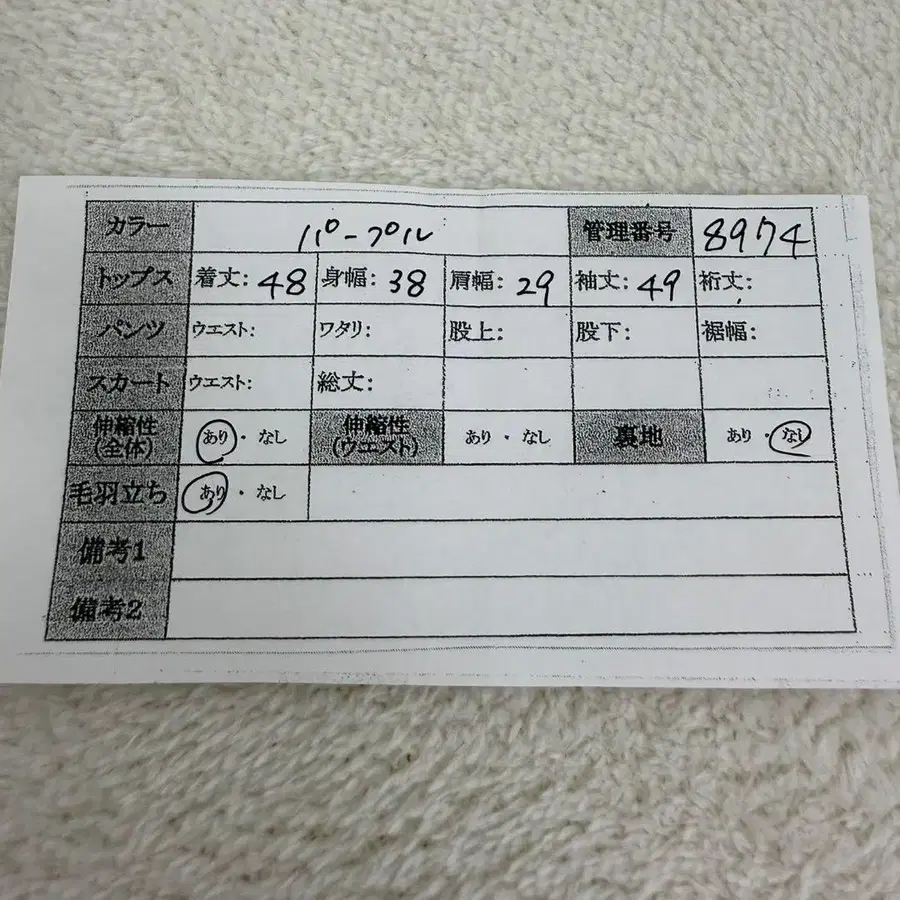 カラー パープル 管理番号 8974
トップス 着丈: 48 身幅: 38 肩幅: 29 袖丈: 49 裄丈:
パンツ ウエスト: ワタリ: 股上: 股下: 裾幅:
スカート ウエスト: 総丈:
伸縮性 あり・なし 伸縮性 あり・なし 裏地 あり・なし
(全体) (ウエスト)
毛羽立ち あり・なし
備考1
備考2